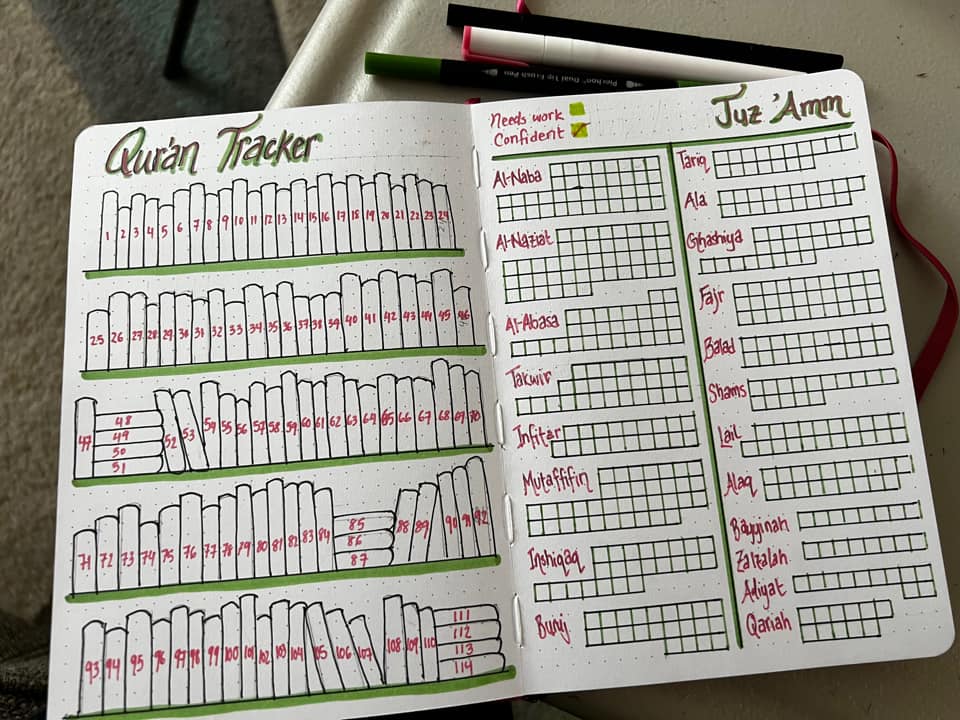 Plexhon® Dual Tip Brush Pen
Qur'an Tracker
1 2 3 4 5 6 7 8 9 10 11 12 13 14 15 16 17 18 19 20 21 22 23 24
25 26 27 28 29 30 31 32 33 34 35 36 37 38 39 40 41 42 43 44 45 46
47 48 49 50 51 52 53 54 55 56 57 58 59 60 61 62 63 64 65 66 67 68 69 70
71 72 73 74 75 76 77 78 79 80 81 82 83 84 85 86 87 88 89 90 91 92
93 94 95 96 97 98 99 100 101 102 103 104 105 106 107 108 109 110 111 112 113 114
Needs work
Confident
Juz 'Amm
Al-Naba
Al-Naziat
Al-Abasa
Takwir
Infitar
Mutaffifin
Inshiqaq
Buruj
Tariq
Ala
Ghashiya
Fajr
Balad
Shams
Lail
Alaq
Bayyinah
Zalzalah
Adiyat
Qariah